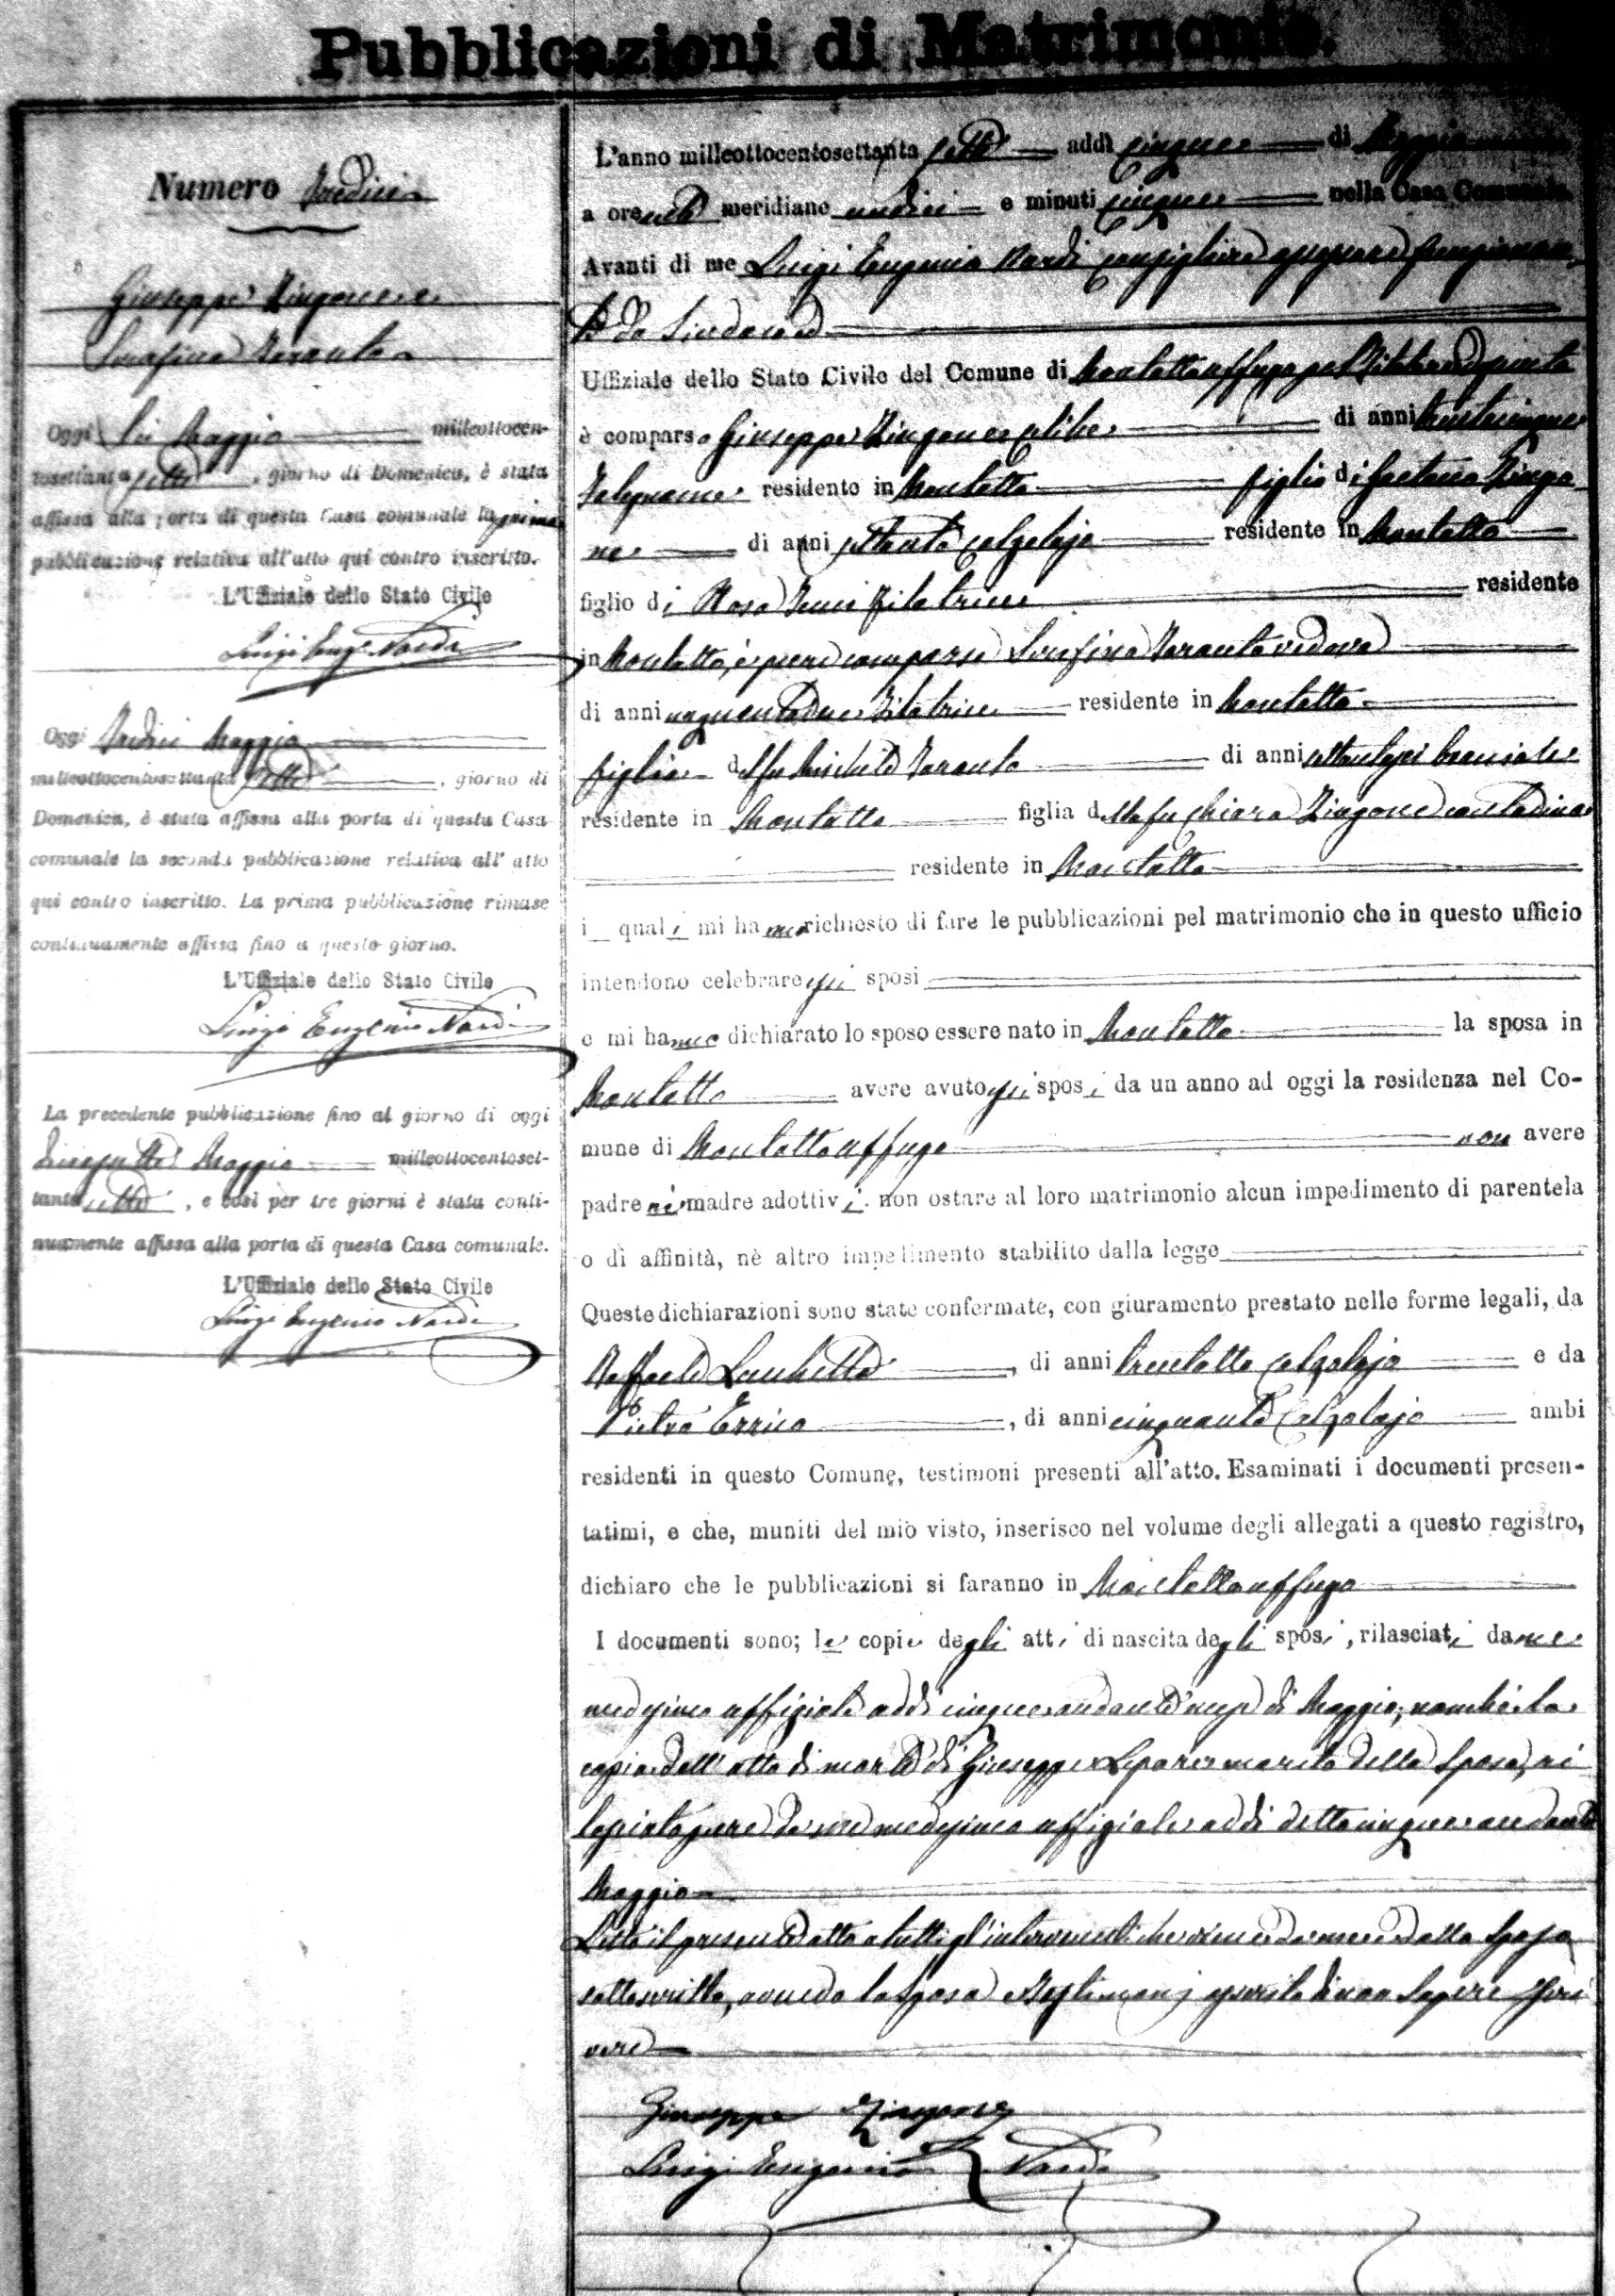 Pubblicazioni di Matrimonio.
Numero tredici
Giuseppe Zingone e
Serafina Taranto
Oggi sei Maggio milleottocen-
tosettanta sette, giorno di Domenica, è stata
affissa alla porta di questa Casa comunale la prima
pubblicazione relativa all'atto qui contro inscritto.
L'Uffiziale dello Stato Civile
Luigi Eug. Nardi
Oggi tredici Maggio
millecottocentosettanta sette, giorno di
Domenica, è stata affissa alla porta di questa Casa
comunale la seconda pubblicazione relativa all' atto
qui contro inscritto. La prima pubblicazione rimase
continuamente affissa fino a questo giorno.
L'Uffiziale dello Stato Civile
Luigi Eugenio Nardi
La precedente pubblicazione fino al giorno di oggi
Maggio millecottocentoset-
tanta sette, e così per tre giorni è stata conti-
nuamente affissa alla porta di questa Casa comunale.
L'Uffiziale dello Stato Civile
Luigi Eugenio Nardi
L'anno milleottocentosettanta sette addì cinque di Maggio
a ore anti meridiane undici e minuti cinque nella Casa Comunale.
Avanti di me Luigi Eugenio Nardi Consigliere
da Sindaco
Uffiziale dello Stato Civile del Comune di Montalto Uffugo
è comparso Giuseppe Zingone celibe di anni trentacinque
Falegname residente in Montalto figlio di Gaetano Zingo
ne di anni settanta Calzolajo residente in Montalto
figlio di Rosa filatrice residente
in Montalto, è pure comparsa Serafina Taranto vedova
di anni filatrice residente in Montalto
figlia del fu Michele Taranto di anni bracciale
residente in Montalto figlia della fu Chiara Zingone contadina
residente in Montalto
i quali mi hanno richiesto di fare le pubblicazioni pel matrimonio che in questo ufficio
intendono celebrare gli sposi
e mi hanno dichiarato lo sposo essere nato in Montalto la sposa in
Montalto avere avuto gli sposi da un anno ad oggi la residenza nel Co-
mune di Montalto Uffugo non avere
padre nè madre adottivi, non ostare al loro matrimonio alcun impedimento di parentela
o di affinità, nè altro impedimento stabilito dalla legge
Queste dichiarazioni sono state confermate, con giuramento prestato nelle forme legali, da
Raffaele di anni trentotto Calzolajo e da
Pietro Errico, di anni cinquanta Calzolajo ambi
residenti in questo Comune, testimoni presenti all'atto. Esaminati i documenti presen-
tatimi, e che, muniti del mio visto, inserisco nel volume degli allegati a questo registro,
dichiaro che le pubblicazioni si faranno in Montalto Uffugo
I documenti sono; le copie degli atti di nascita degli sposi, rilasciati da me
medesimo uffiziale addì cinque andante mese di Maggio, nonchè la
copia dell'atto di morte di Giuseppe marito della sposa, ri
lasciato pure da me medesimo uffiziale addì detto cinque andante
Maggio
Letto il presente atto a tutti gl'intervenuti che viene da me e dallo sposo
sottoscritto, avendo la sposa e testimonj asserito di non sapere scri
vere
Giuseppe Zingone
Luigi Eugenio Nardi